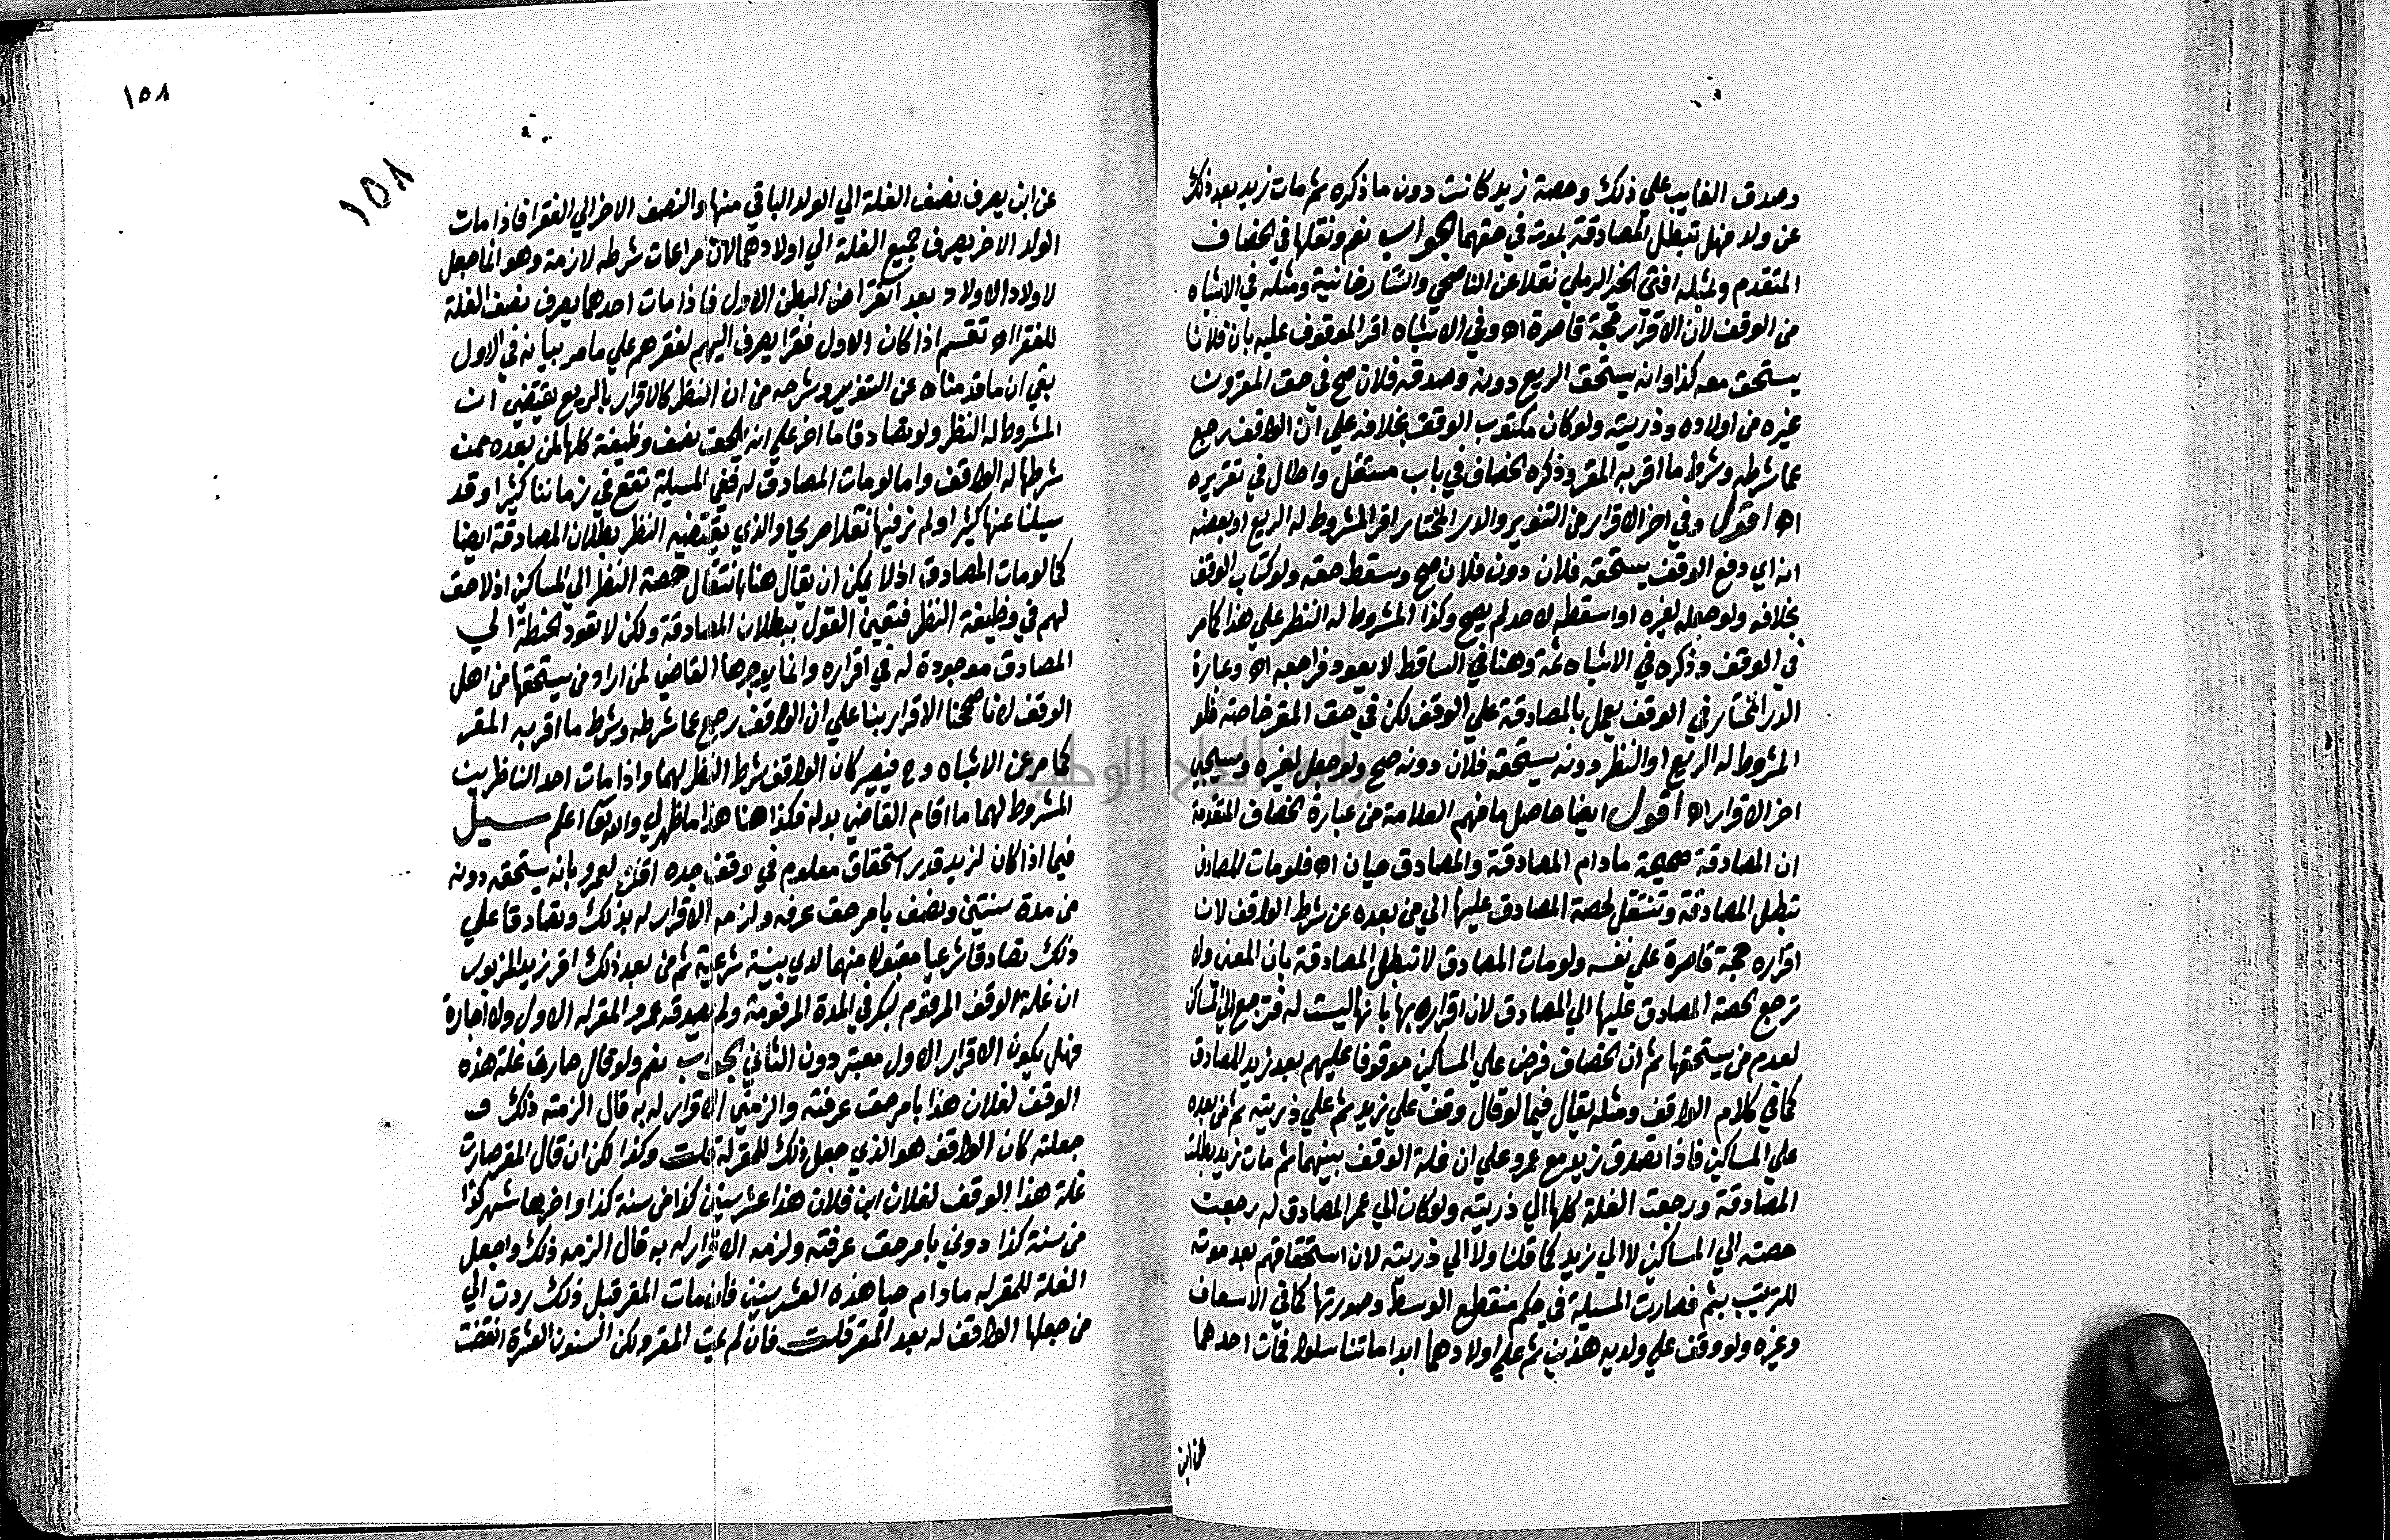 وصدق الغايب علي ذلك وحصة زيد كانت دون ما ذكره ثم مات زيد بعد ذلك
عن ولد فهل تبطل المصادقة بموته في حقهما الجواب نعم ونقلها في الخصاف
المتقدم ولمثله افتي الخير الرملي نقلا عن الناصحي والتتارخانية ومثله في الاشباه
من الوقف لان الاقرار حجة قاصرة اه وفي الاشباه اقر الموقوف عليه بان فلانا
يستحق معه كذا وانه يستحق الريع دونه وصدقه فلان صح في حق المقر دون
غيره من اولاده وذريته ولو كان مكتوب الوقف بخلافه علي ان الواقف رجع
عما شرطه وشرط ما اقر به المقر وذكره الخصاف في باب مستقل واطال في تقريره
اه اقول وفي اخر الاقرار من التنوير والدر المختار اقر المشروط له الريع او بعضه
انه اي دفع الوقف يستحقه فلان دون فلان صح وسقط حقه ولو كتاب الوقف
بخلافه ولو جعله لغيره او اسقطه لاحد لم يصح وكذا المشروط له النظر علي هذا كما مر
في الوقف وذكره في الاشباه ثمة وهنا في الساقط لا يعود فراجعه اه وعبارة
الدر المختار في الوقف يعمل بالمصادقة علي الوقف لكن في حق المقر خاصة فلو
المشروط له الريع او النظر دونه يستحقه فلان دونه صح ولو جعل لغيره وسيجي
اخر الاقرار اه اقول ايضا حاصل ما فهم العلامة من عبارة الخصاف المتقدمة
ان المصادقة صحيحة مادام المصادقة والمصادق حيان اه فلو مات المصادق
تبطل المصادقة وتنتقل لحصة المصادق عليها الي من بعده عن شرط الواقف لان
اقراره حجة قاصرة علي نفسه ولو مات المصادق لا تبطل المصادقة بان المعنى ولا
ترجع لحصة المصادق عليها الي المصادق لان اقراره بها بانها ليست له فترجع الي المساكن
لعدم من يستحقها ثم ان الخصاف فرض علي المساكين موقوفا عليهم بعد زيد للمصادق
كما في كلام الواقف ومثله يقال فيما لو قال وقف علي زيد ثم علي ذريته ثم من بعده
علي المساكين فاذا تصدق زيد مع عمرو علي ان غلة الوقف بينهما ثم مات زيد بطلت
المصادقة ورجعت الغلة كلها الي ذريته ولو كان الي عمر المصادق له رجعت
حصته الي المساكين لا الي زيد كما قلنا ولا الي ذريته لان استحقاقهم بعد موته
للترتيب بثم فصارت المسيلة في حكم منقطع الوسط وصورتها كما في الاسعاف
وغيره ولو وقف علي ولديه هذين ثم علي اولادهما ابدا ما تناسلوا فمات احدهما
عن ابن
١٥٨
١٥٨
عن ابن يصرف نصف الغلة الي الولد الباقي منها والنصف الاخر الي الفقرا فاذا مات
الولد الاخر يصرف جميع الغلة الي اولادهما لان مراعات شرطه لازمة وهو انما جعل
لاولاد الاولاد بعد انقراض البطن الاول فاذا مات احدهما يصرف نصف الغلة
للفقرا اه تقسم اذا كان الاول فقرا يصرف اليهم لفقرهم علي ما مر بيانه في الاول
بقي ان ما قدمناه عن التنوير وشرحه من ان النظر كالاقرار بالريع يقتضي ان
المشروط له النظر ولو تصادقا ما اخر علي انه يستحق نصف وظيفة كلها لمن بعده ممن
شرطها له الواقف واما لو مات المصادق له ففي المسيلة تقع في زماننا كثيرا وقد
سيلنا عنها كثيرا ولم نر فيها نقلا صريحا والذي يقتضيه النظر بطلان المصادقة ايضا
كما لو مات المصادق اذ لا يمكن ان يقال هنا بانتقال حصة النظر الي المساكين اذ لا حق
لهم في وظيفة النظر فتعين القول ببطلان المصادقة ولكن لا تعود الخطة الي
المصادق موجودة له في اقراره وانما يوجرها القاضي لمن اراد من يستحقها من اهل
الوقف لانا صححنا الاقرار بنا علي ان الواقف رجع عما شرطه وشرط ما اقر به المقر
كما مر عن الاشباه وح فيصير كان الواقف شرط النظر لهما واذا مات احد الناظرين
المشروط لهما ما اقام القاضي بدله فكذا هنا هذا ما ظهر لي والله تعا اعلم سيل
فيما اذا كان لزيد قدر استحقاق معلوم في وقف جده اقر لعمرو بانه يستحقه دونه
من مدة سنتين ونصف بامر حق عرفه ولزمه الاقرار له بذلك وتصادقا علي
ذلك تصادقا شرعيا مقبولا منهما لدي بينة شرعية ثم من بعد ذلك اقر زيد المزبور
ان غلة الوقف المرقوم لبكر في المدة المرقومة ولم يصدقه عمرو المقر له الاول ولا اجازه
فهل يكون الاقرار الاول معتبر دون الثاني الجواب نعم ولو قال صارت غلة هذه
الوقف لفلان هذا بامر حق عرفته والزمني الاقرار له به قال الزمته ذلك و
جعلته كان الواقف هو الذي جعل ذلك للمقر له قلت وكذا لكن ان قال المقر صارت
غلة هذا الوقف لفلان ابن فلان هذا عشر سنين كذا من سنة كذا واخرها شهر كذا
من سنة كذا دوني بامر حق عرفته ولزمه الاقرار له به قال الزمه ذلك واجعل
الغلة للمقر له مادام حيا هذه العشر سنين فان مات المقر قبل ذلك ردت الي
من جعلها الواقف له بعد المقر قلت فان لم يمت المقر ولكن السنون العشرة انقضت